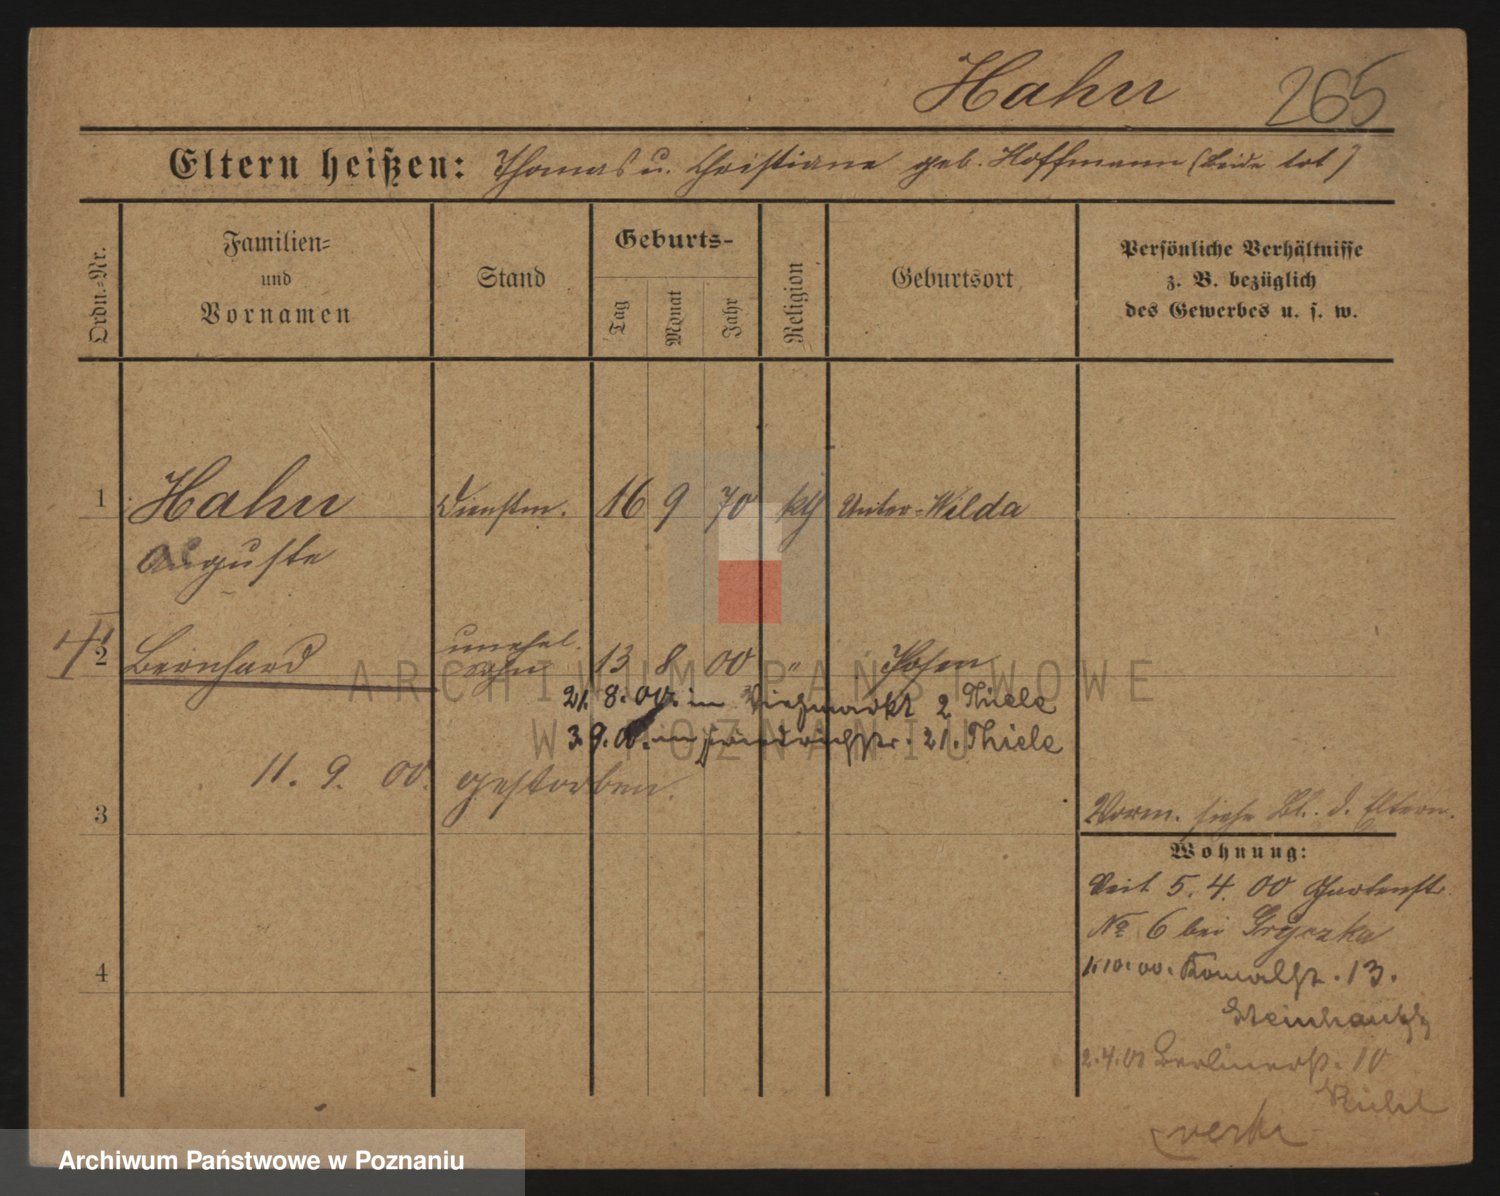 Hahn 265
Eltern heißen: Thomas u. Christiane geb. Hoffmann (beide tot)
Ordn.-Nr.
Familien-
und
Vornamen
Stand
Geburts-
Tag
Monat
Jahr
Religion
Geburtsort
Persönliche Verhältnisse
z. B. bezüglich
des Gewerbes u. s. w.
1 Hahn Dienstm. 16 9 70 kth Unter-Wilda
Auguste
2 Bernhard unehel. Sohn 13 8 00 " Posen
21. 8. 00. im Viehmarkt 2 Thiele
3. 9. 00. Friedrichstr. 21. Thiele
11. 9. 00. gestorben.
3
Vorm. siehe Bl. d. Eltern.
Wohnung:
Seit 5. 4. 00 Gartenstr.
No 6 bei Gryczka
1.10.00. 13.
4
2.4.01 Berlinerstr. 10
ARCHIWUM PAŃSTWOWE
W POZNANIU
Archiwum Państwowe w Poznaniu